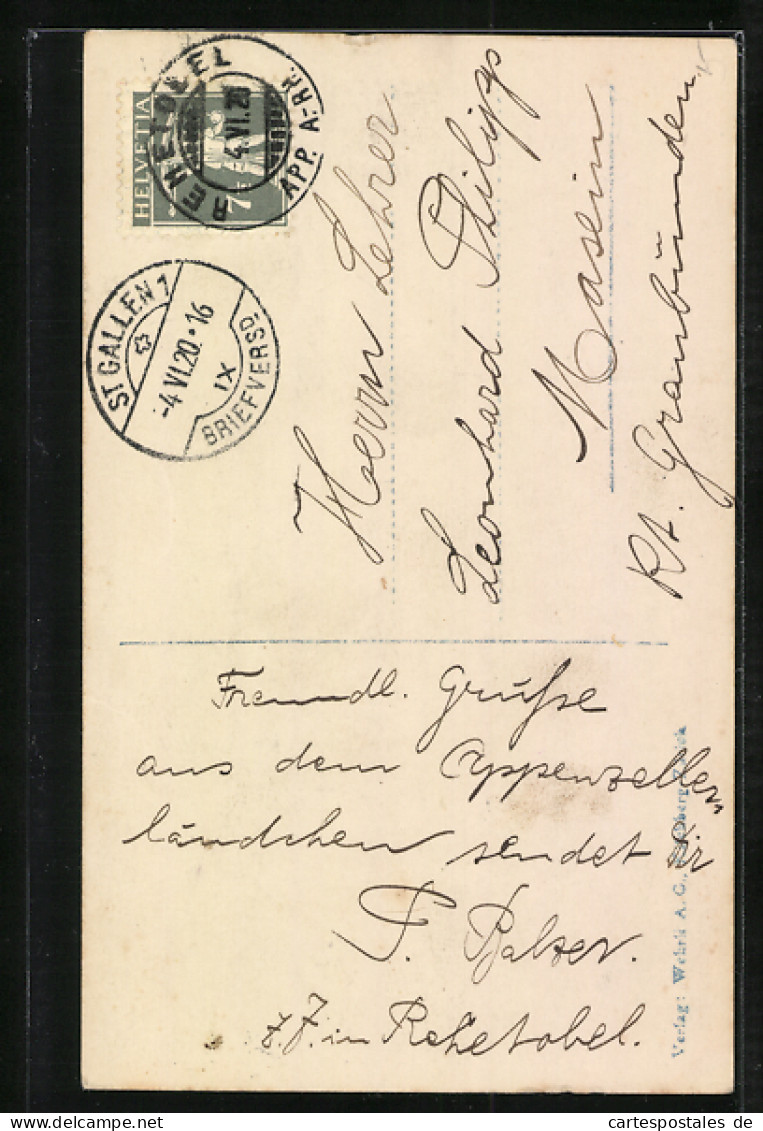 HELVETIA
7
REHETOBEL
4.VI.20
APP. A.-RH.
ST. GALLEN 1
-4.VI.20.-16
IX
BRIEFVERSD.
Herrn Lehrer
Leonhard Philipp
Masein
Kt. Graubünden
Freundl. Grüße
aus dem Appenzeller
ländchen sendet Dir
P. Balzer.
z. Z. in Rehetobel.
Verlag: Wehrli A. G., Kilchberg-Zürich
cartespostales de